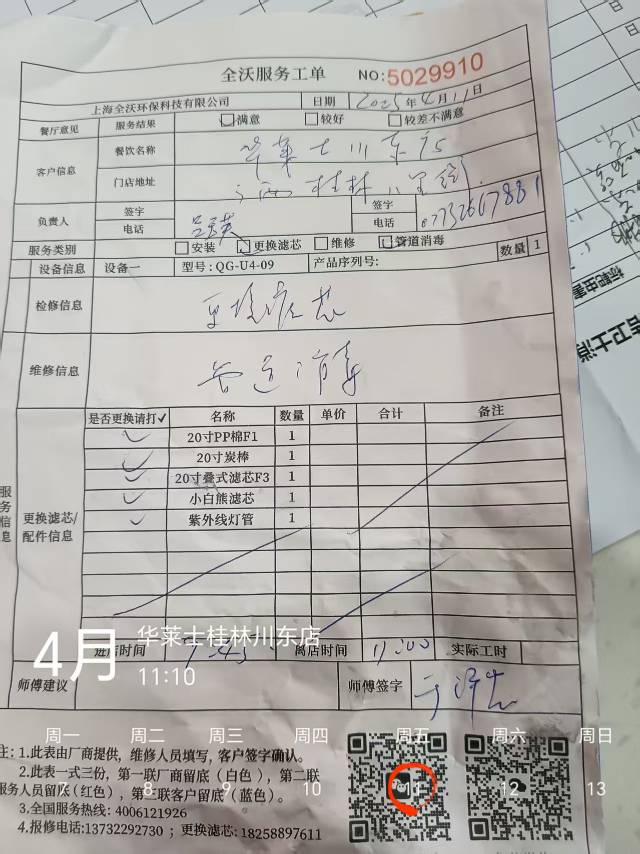 全沃服务工单 NO:5029910
上海全沃环保科技有限公司 日期 2025年4月11日
餐厅意见 服务结果 满意 较好 较差不满意
客户信息 餐饮名称 华莱士川东店
门店地址 广西桂林八里街
负责人 签字 签字
电话 电话
服务类别 安装 更换滤芯 维修 管道消毒 数量 1
设备信息 设备一 型号:QG-U4-09 产品序列号:
检修信息 更换滤芯
维修信息 管道消毒
是否更换请打✓ 名称 数量 单价 合计 备注
✓ 20寸PP棉F1 1
✓ 20寸炭棒 1
✓ 20寸叠式滤芯F3 1
✓ 小白熊滤芯 1
✓ 紫外线灯管 1
更换滤芯/
配件信息
服务信息
进店时间 离店时间 11:00 实际工时
师傅建议 师傅签字
4月 华莱士桂林川东店
11:10
周一 周二 周三 周四 周五 周六 周日
7 8 9 10 11 12 13
注:1.此表由厂商提供，维修人员填写，客户签字确认。
2.此表一式三份，第一联厂商留底（白色），第二联
服务人员留底(红色)，第三联客户留底（蓝色）。
3.全国服务热线: 4006121926
4.报修电话:13732292730；更换滤芯: 18258897611